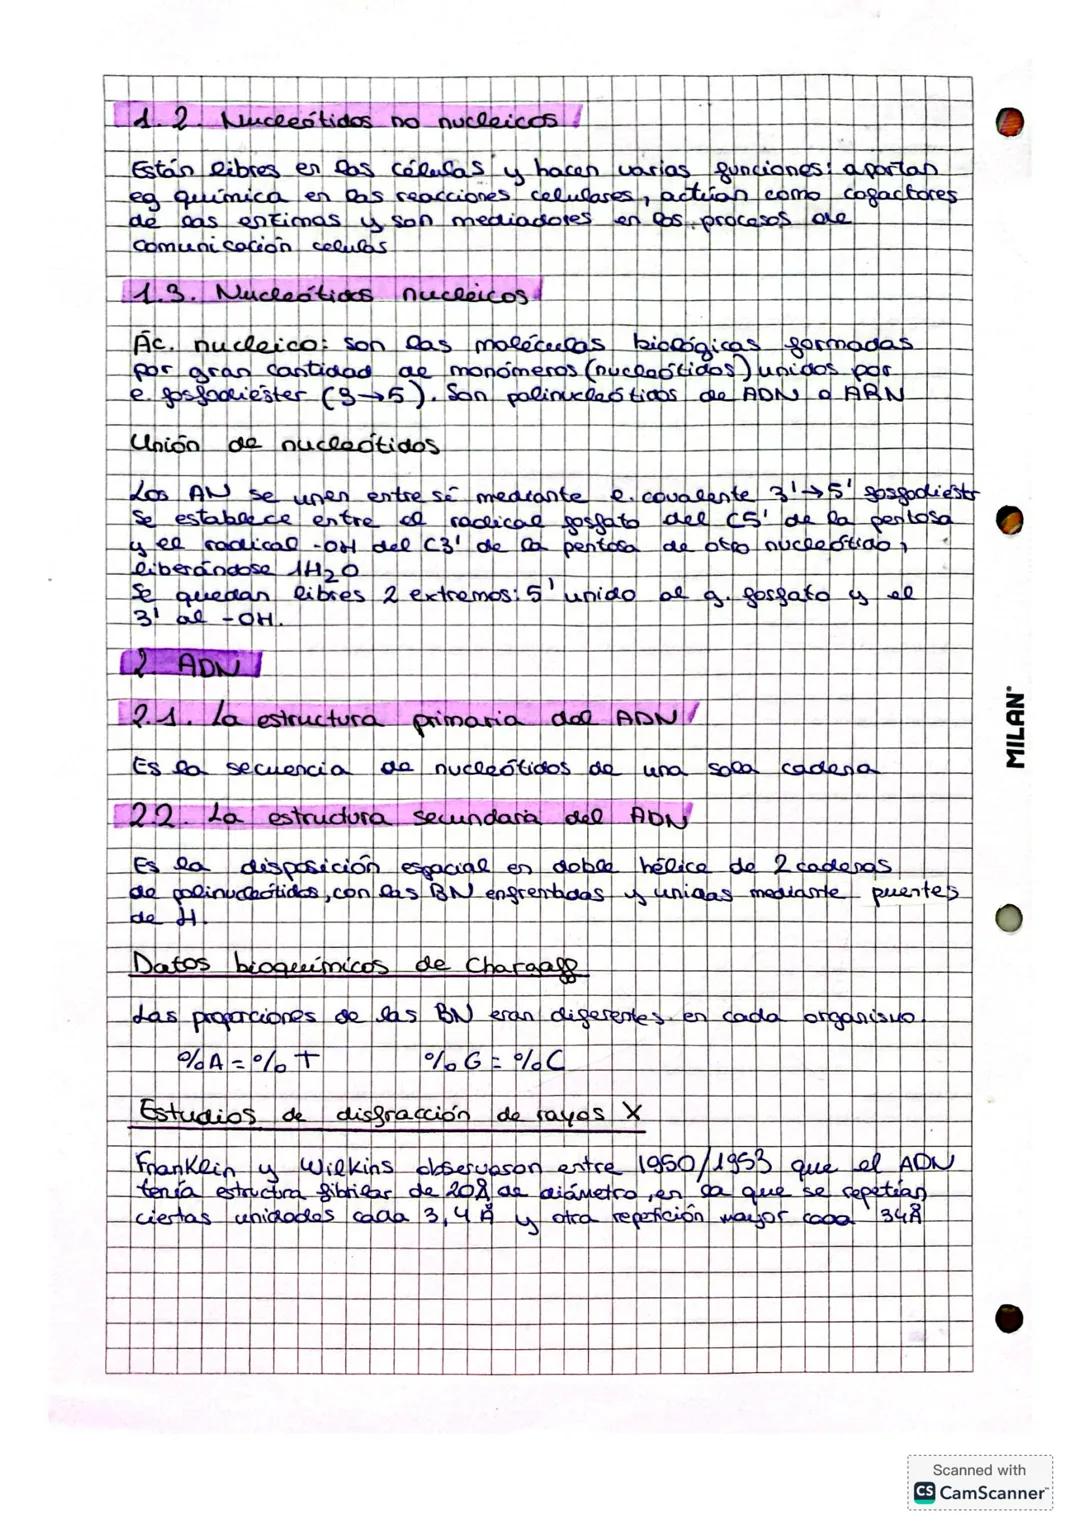 1.2. Nucleótidos no nucleicos
Están libres en las células y hacen varias funciones: aportan
eg química en las reacciones celulares, actúan como cofactores
de las enzimas y son mediadores en los procesos de
comunicación celulas
1.3. Nucleótidos nucleicos
Ác. nucleico: son las moléculas biológicas formadas
por gran cantidad de monómeros (nucleótidos) unidos por
e. fosfodiéster (3→5). Son polinucleótidos de ADN o ARN
Unión de nucleótidos
Los AN se unen entre sí mediante e. covalente 3'→5' fosfodiestr
Se establece entre el radical fosfato del C5' de la pentosa
y el radical -OH del C3' de la pentosa de otro nucleótido,
liberándose 1H2O
Se quedan libres 2 extremos: 5' unido al g. fosfato y el
3' al -OH.
2 ADN
2.1. La estructura primaria del ADN
Es la secuencia de nucleótidos de una sola cadena
2.2. La estructura secundaria del ADN
Es la disposición espacial en doble hélice de 2 cadenas
de polinucleótidos, con las BN enfrentadas y unidas mediante puentes
de H.
Datos bioquímicos de Chargaff
Las proporciones de las BN eran diferentes en cada organismo.
%A = %T %G = %C
Estudios de disfracción de rayos X
Franklin y Wilkins observaron entre 1950/1953 que el ADN
tenía estructura fibrilar de 20Å de diámetro, en la que se repetían
ciertas unidades cada 3,4 Å y otra repetición mayor cada 34Å
MILAN
Scanned with
CS CamScanner